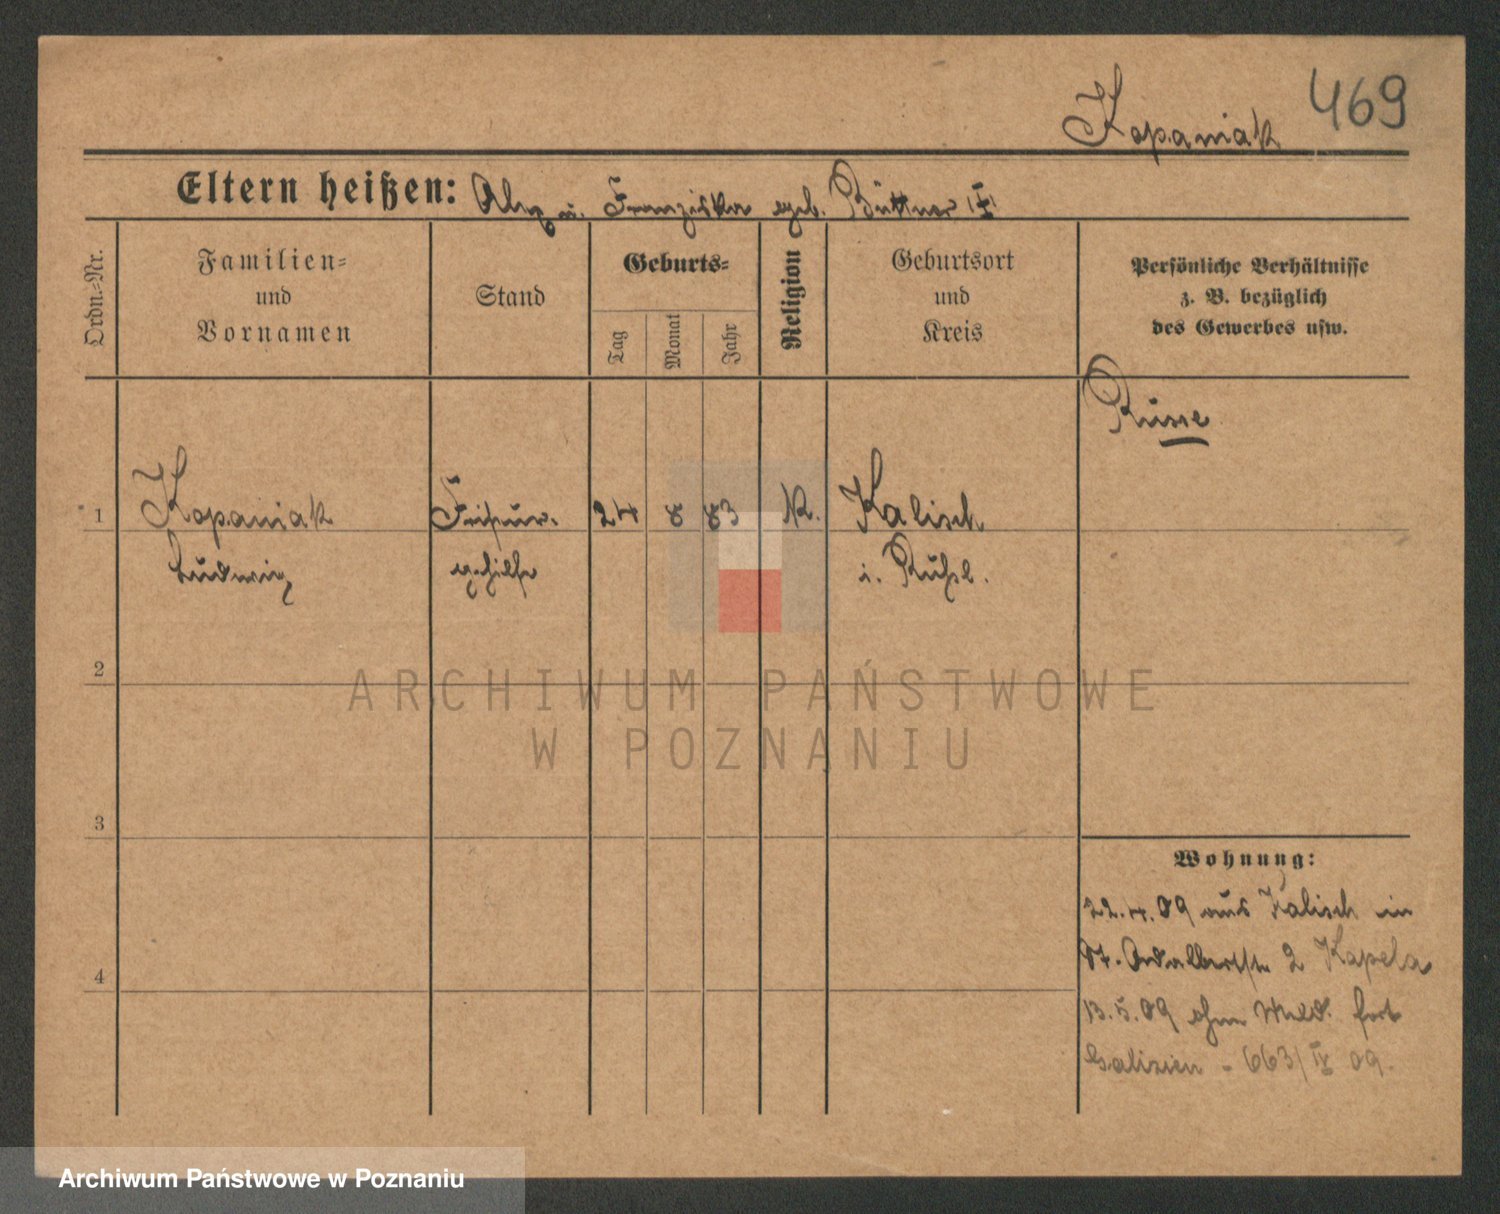 Kopaniak 469
Eltern heißen: u. Franziska geb. Büttner
Ordn.-Nr.
Familien-
und
Vornamen
Stand
Geburts-
Tag
Monat
Jahr
Religion
Geburtsort
und
Kreis
Persönliche Verhältnisse
z. B. bezüglich
des Gewerbes usw.
Russe
1 Kopaniak Friseur- 24 8 83 K. Kalisch
Ludwig gehilfe i. Rußl.
2
3
4
Wohnung:
22.4.09 aus Kalisch in
St. Adalbertstr 2 Kapela
13.5.09 ohne Meld. fort
Galizien - 663/IV 09.
ARCHIWUM PAŃSTWOWE
W POZNANIU
Archiwum Państwowe w Poznaniu